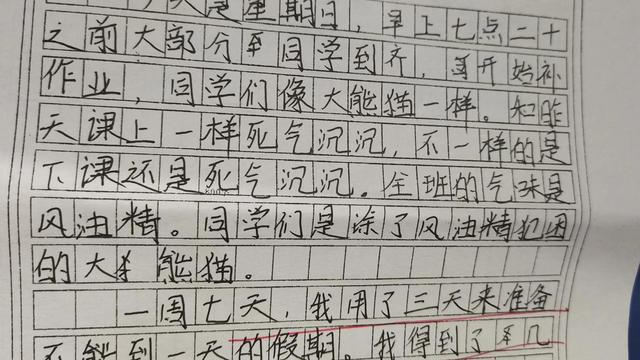 天是星期日，早上七点二十
之前大部分同学到齐，开始补
作业，同学们像大熊猫一样。和昨
天课上一样死气沉沉，不一样的是
下课还是死气沉沉。全班的气味是
风油精。同学们是涂了风油精犯困
的大熊猫。
一周七天，我用了三天来准备
不能到一天的假期。我得到了几